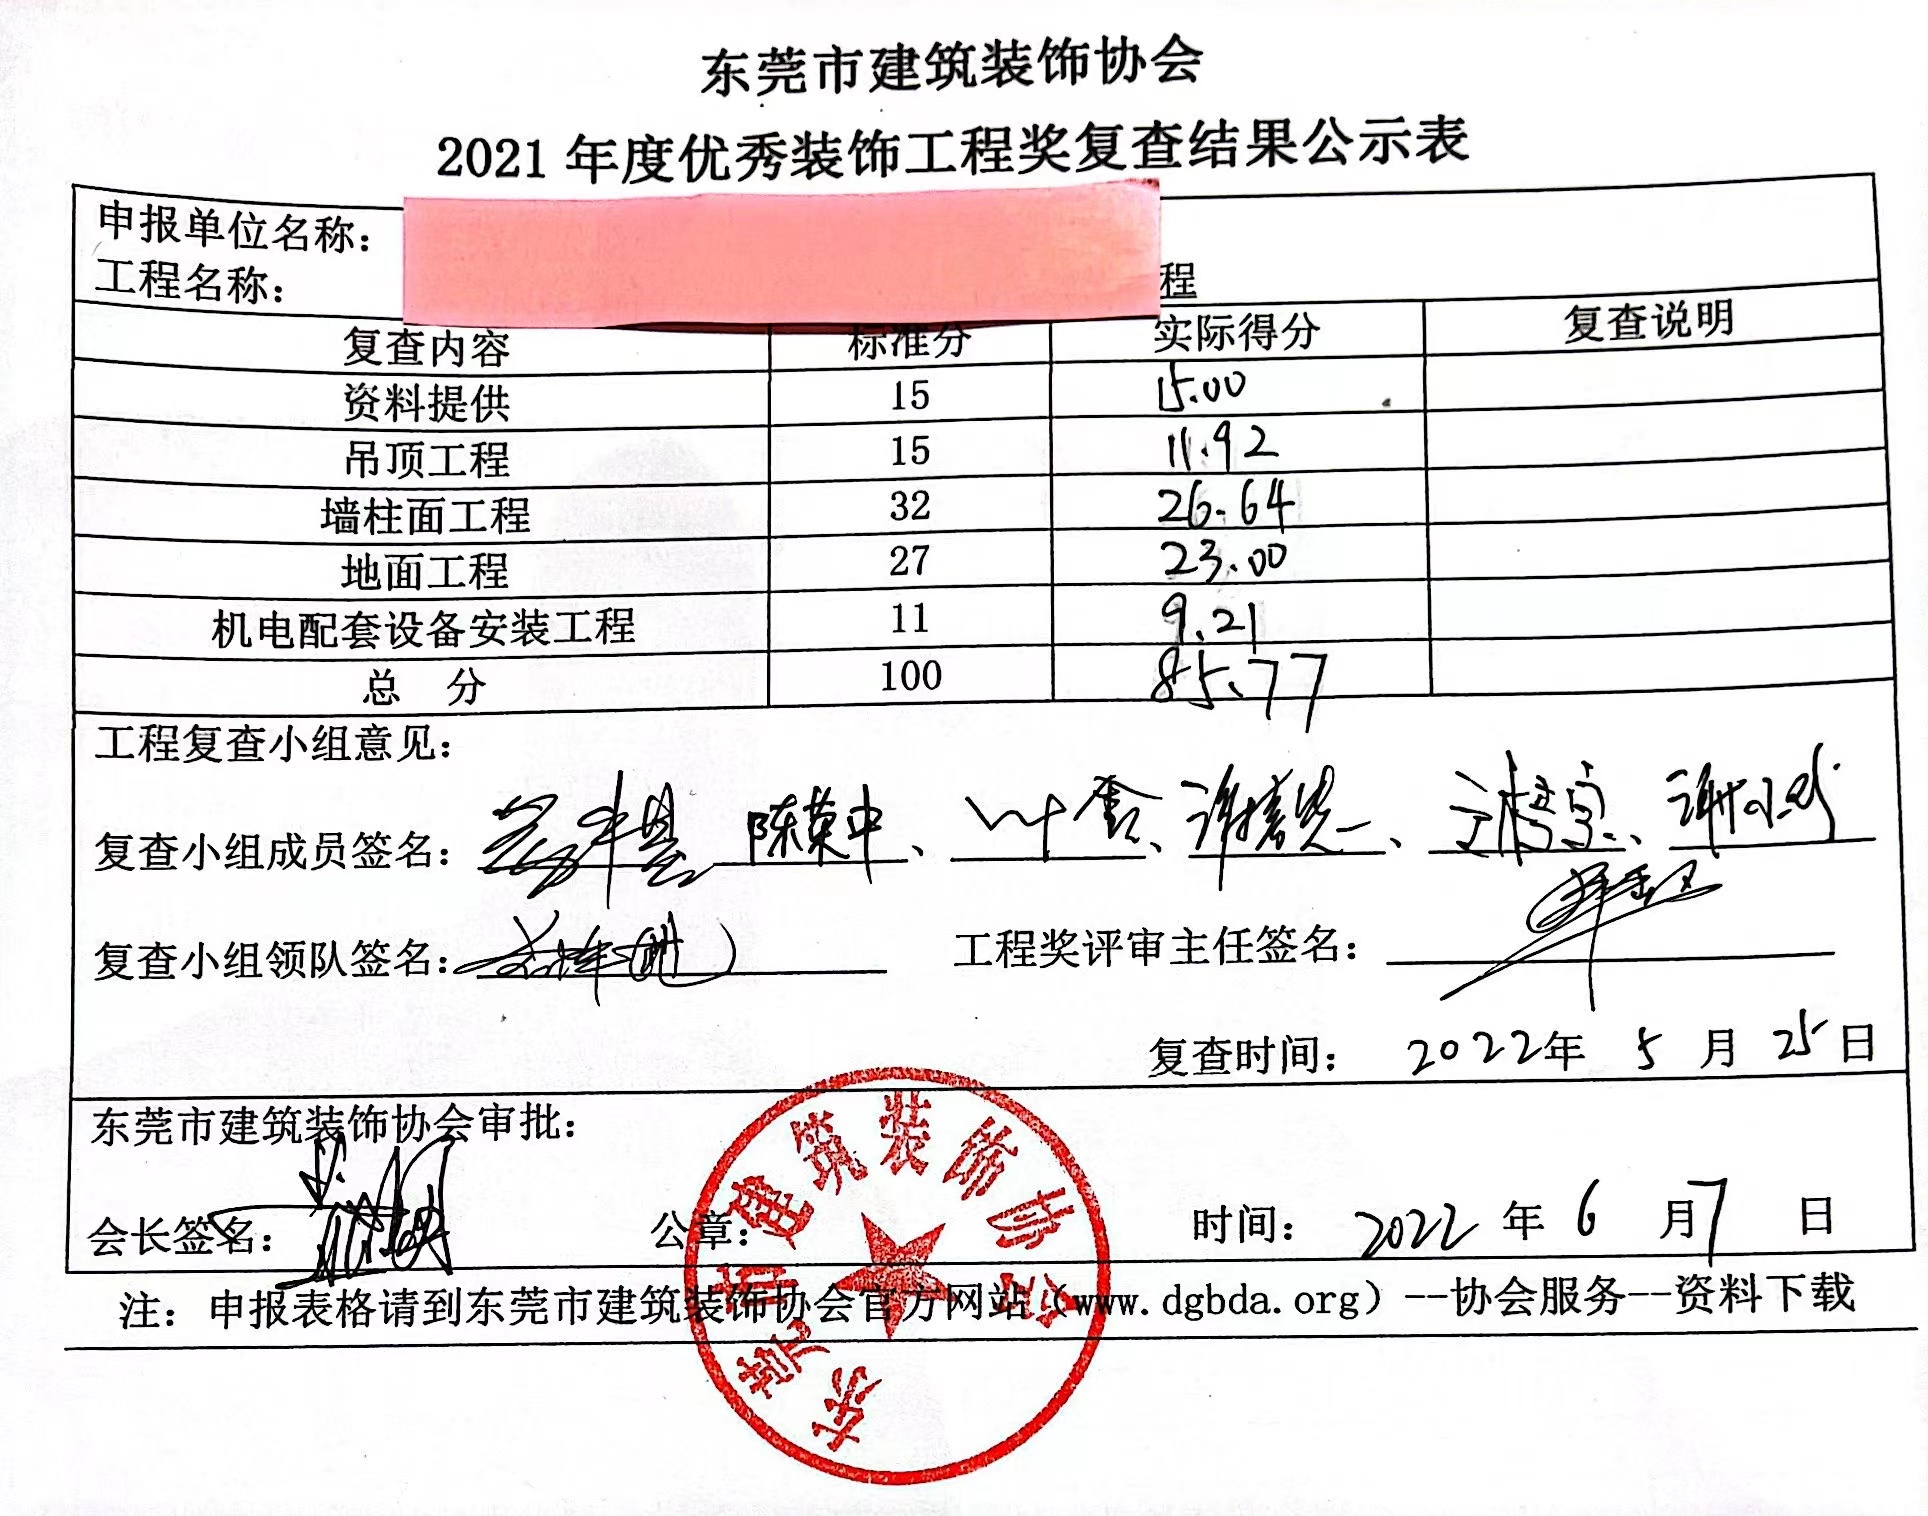 东莞市建筑装饰协会
2021 年度优秀装饰工程奖复查结果公示表
申报单位名称：
工程名称： 程
复查内容 标准分 实际得分 复查说明
资料提供 15 15.00
吊顶工程 15 11.92
墙柱面工程 32 26.64
地面工程 27 23.00
机电配套设备安装工程 11 9.21
总 分 100 85.77
工程复查小组意见：
复查小组成员签名： 陈荣中、 叶 、 、 、
复查小组领队签名： 工程奖评审主任签名：
复查时间： 2022年 5 月 25日
东莞市建筑装饰协会审批：
会长签名： 公章： 时间： 2022 年 6 月 7 日
东莞市建筑装饰协会
注：申报表格请到东莞市建筑装饰协会官方网站（www.dgbda.org）--协会服务--资料下载